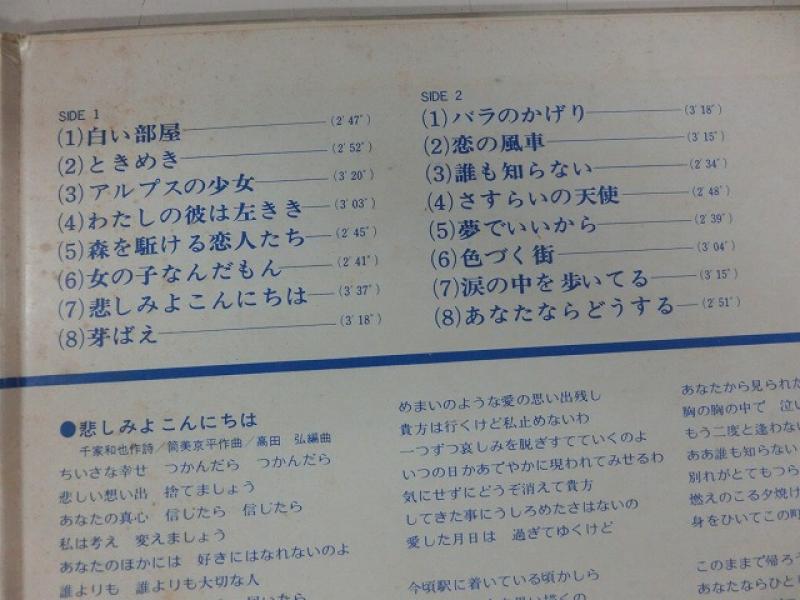 SIDE 1
(1)白い部屋 (2′47″)
(2)ときめき (2′52″)
(3)アルプスの少女 (3′20″)
(4)わたしの彼は左きき (3′03″)
(5)森を駈ける恋人たち (2′45″)
(6)女の子なんだもん (2′41″)
(7)悲しみよこんにちは (3′37″)
(8)芽ばえ (3′18″)
SIDE 2
(1)バラのかげり (3′18″)
(2)恋の風車 (3′15″)
(3)誰も知らない (2′34″)
(4)さすらいの天使 (2′48″)
(5)夢でいいから (2′39″)
(6)色づく街 (3′04″)
(7)涙の中を歩いてる (3′15″)
(8)あなたならどうする (2′51″)
●悲しみよこんにちは
千家和也作詩/筒美京平作曲/高田 弘編曲
ちいさな幸せ つかんだら つかんだら
悲しい想い出 捨てましょう
あなたの真心 信じたら 信じたら
私は考え 変えましょう
あなたのほかには 好きにはなれないのよ
誰よりも 誰よりも大切な人
めまいのような愛の思い出残し
貴方は行くけど私止めないわ
一つずつ哀しみを脱ぎすてていくのよ
いつの日かあでやかに現われてみせるわ
気にせずにどうぞ消えて貴方
してきた事にうしろめたさはないの
愛した月日は 過ぎてゆくけど
今頃駅に着いている頃かしら
あなたから見られた
胸の胸の中で 泣い
もう二度と逢わない
ああ誰も知らない
別れがとてもつら
燃えのこる夕焼け
身をひいてこの町
このままで帰ろう
あなたならひと